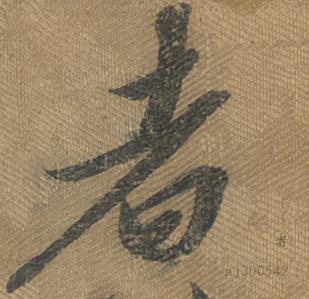 者
者
aj300549